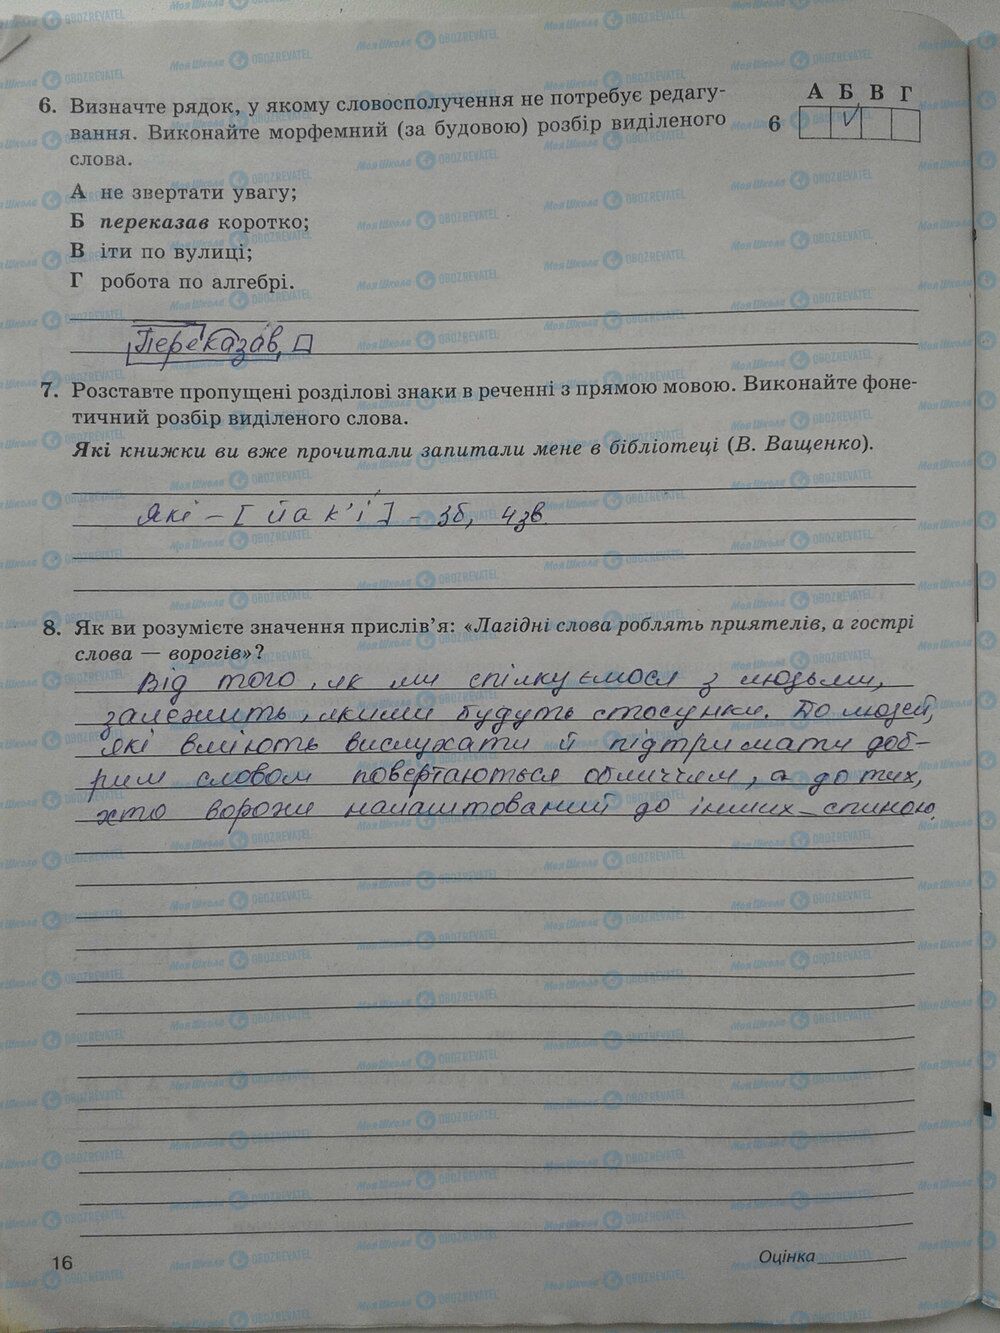 6. Визначте рядок, у якому словосполучення не потребує редагу-
вання. Виконайте морфемний (за будовою) розбір виділеного
слова.
А Б В Г
6 V
А не звертати увагу;
Б переказав коротко;
В іти по вулиці;
Г робота по алгебрі.
Переказав,
7. Розставте пропущені розділові знаки в реченні з прямою мовою. Виконайте фоне-
тичний розбір виділеного слова.
Які книжки ви вже прочитали запитали мене в бібліотеці (В. Ващенко).
Які – [йак'і] – 3б, 4зв.
8. Як ви розумієте значення прислів'я: «Лагідні слова роблять приятелів, а гострі
слова — ворогів»?
Від того, як ми спілкуємося з людьми,
залежить, якими будуть стосунки. До людей,
які вміють вислухати й підтримати доб-
рим словом повертаються обличчям, а до тих,
хто вороже налаштований до інших – спиною.
16
Оцінка
МояШкола OBOZREVATEL